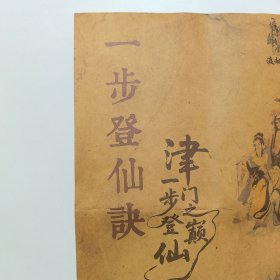 一步登仙訣
津门之巅
一步登仙